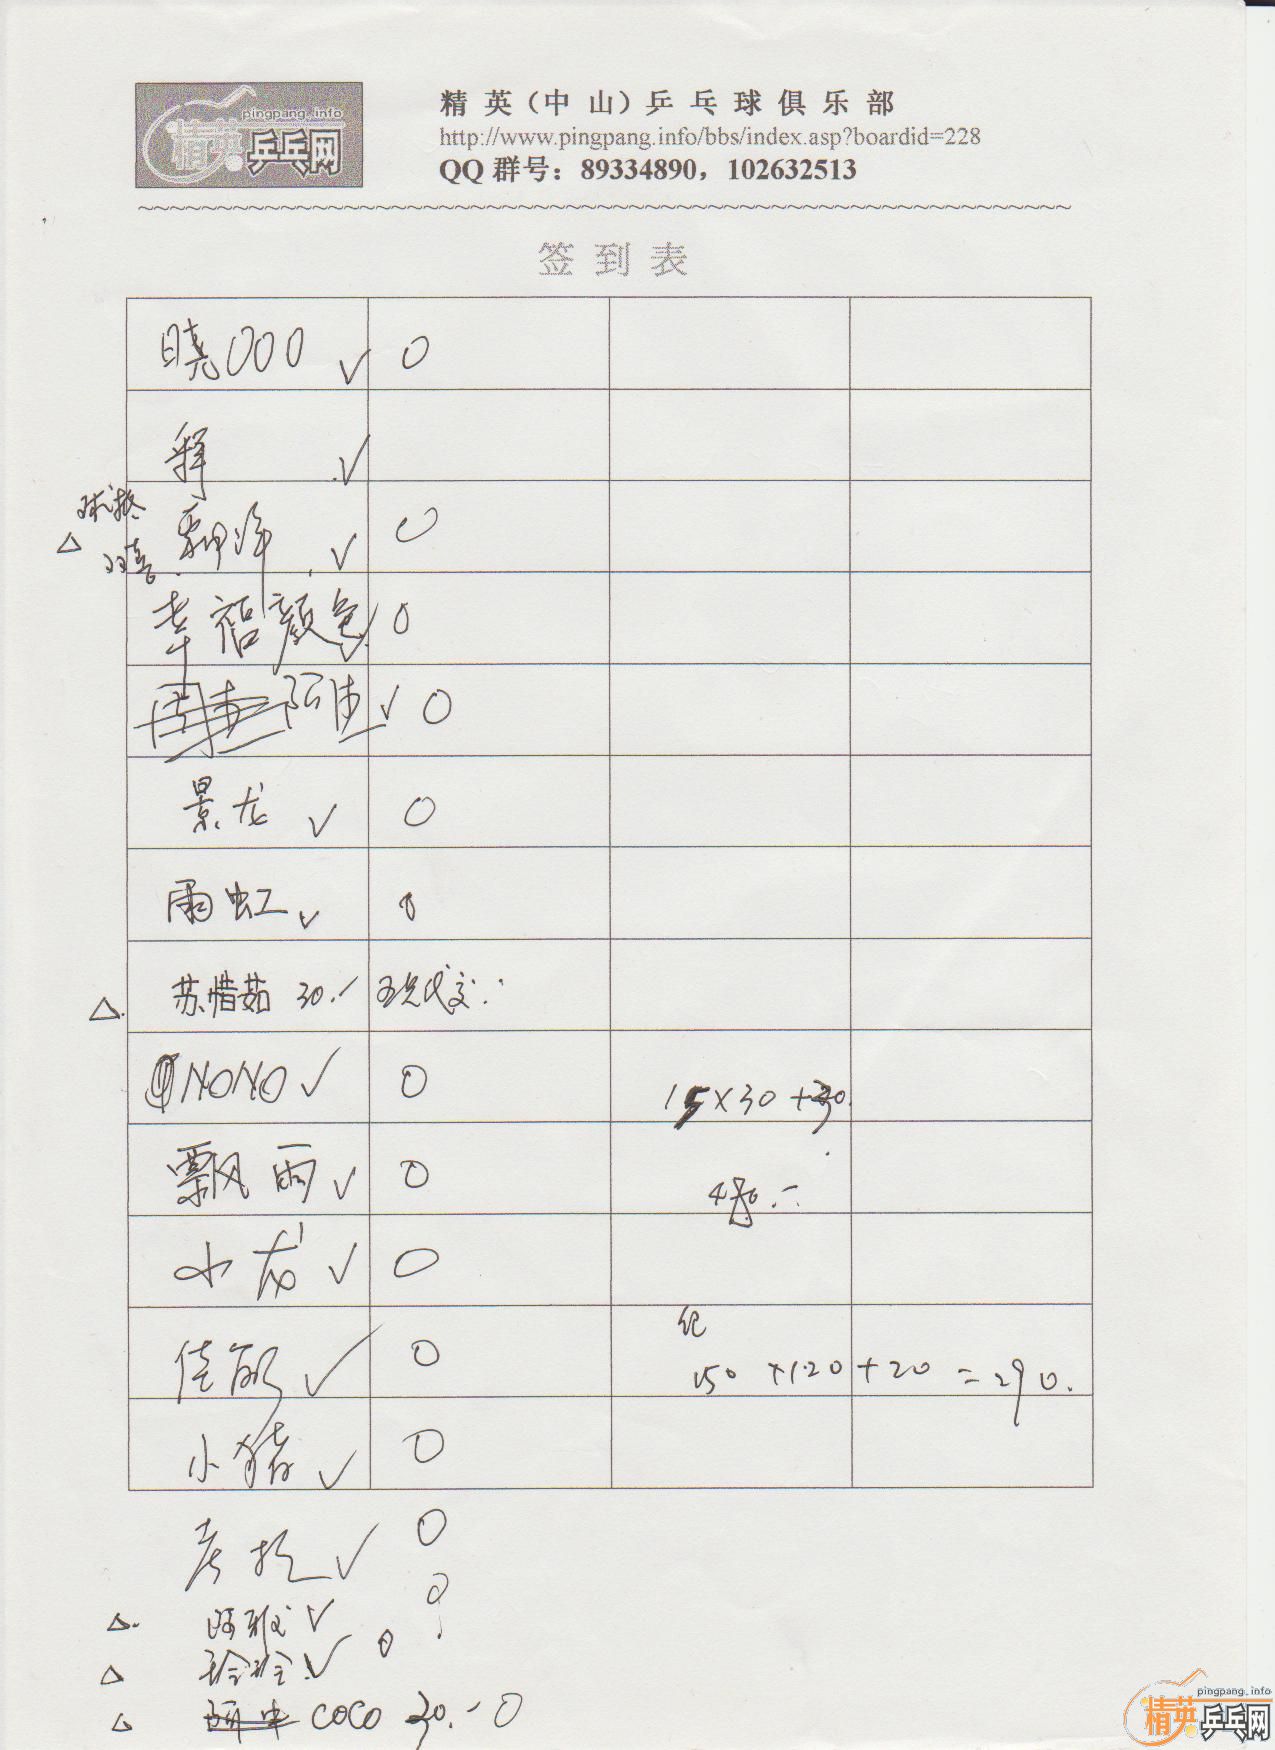 pingpang.info
精英乒乓网
精 英（中 山）乒 乓 球 俱 乐 部
http://www.pingpang.info/bbs/index.asp?boardid=228
QQ 群号：89334890，102632513
签 到 表
晓000 √ 0
释 √
√ 0
幸福颜色 √ 0
√ 0
景龙 √ 0
雨虹 √ 0
苏惜茹 30.-
NONO √ 0
15×30+30.
飘雨 √ 0
小龙 √ 0
纪
佳 √ 0
150 +120 +20 =290.
小猪 √ 0
√ 0
阿 √ 0
玲玲 √ 0
COCO 30.- 0
pingpang.info
精英乒乓网